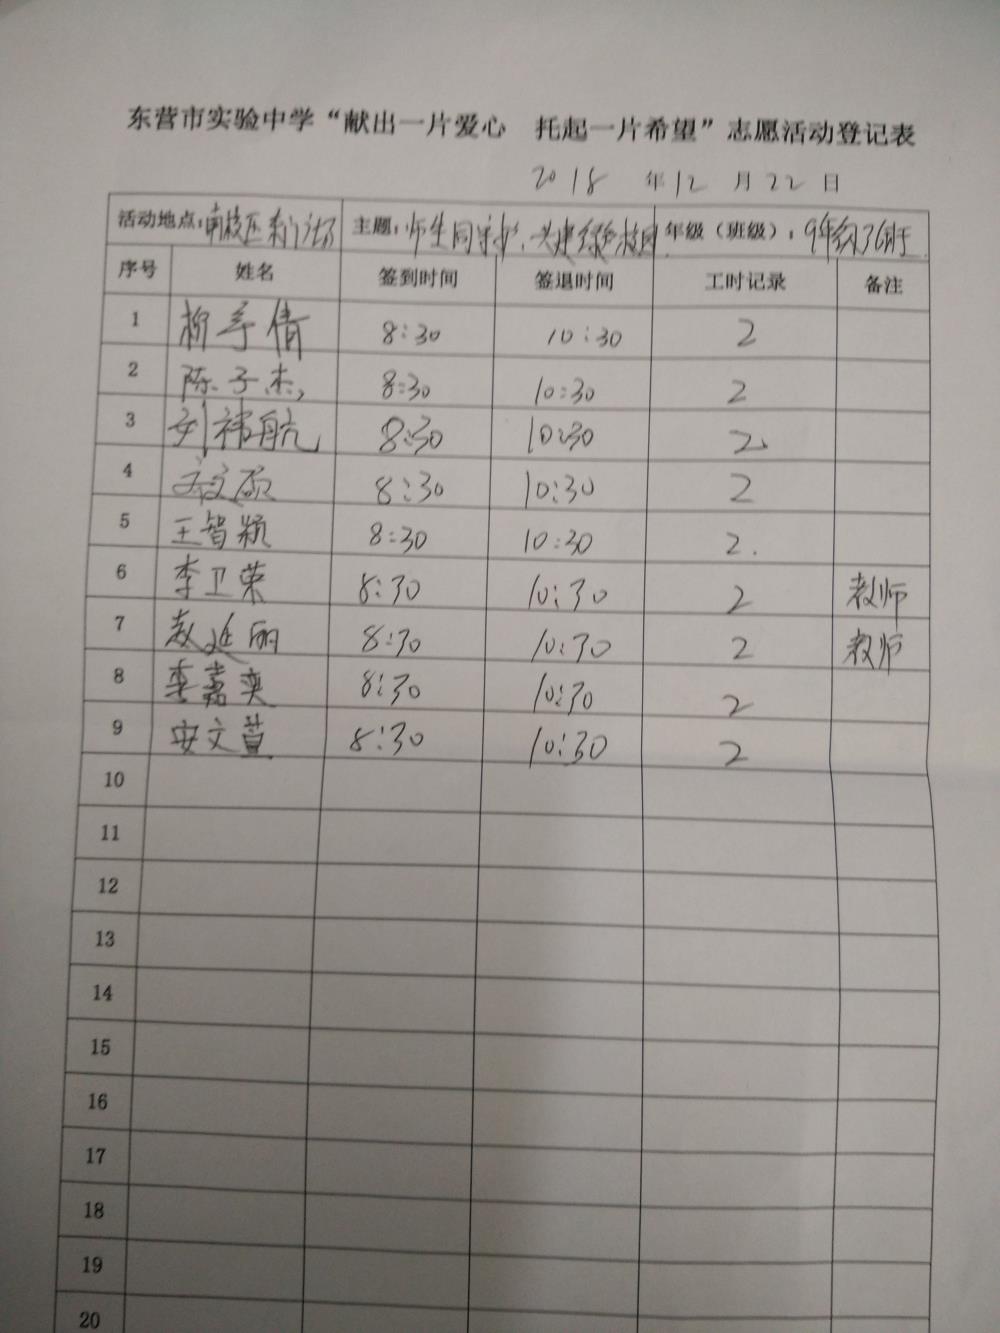 东营市实验中学“献出一片爱心　托起一片希望”志愿活动登记表
2018 年 12 月 22 日
活动地点：南校区东门 主题：师生同守护、共建绿色校园 年级（班级）：9年级
序号 姓名 签到时间 签退时间 工时记录 备注
1 柳 倩 8:30 10:30 2
2 陈子杰 8:30 10:30 2
3 刘祎航 8:30 10:30 2
4 8:30 10:30 2
5 王智颖 8:30 10:30 2
6 李卫荣 8:30 10:30 2 教师
7 赵延丽 8:30 10:30 2 教师
8 李嘉奕 8:30 10:30 2
9 安文萱 8:30 10:30 2
10
11
12
13
14
15
16
17
18
19
20